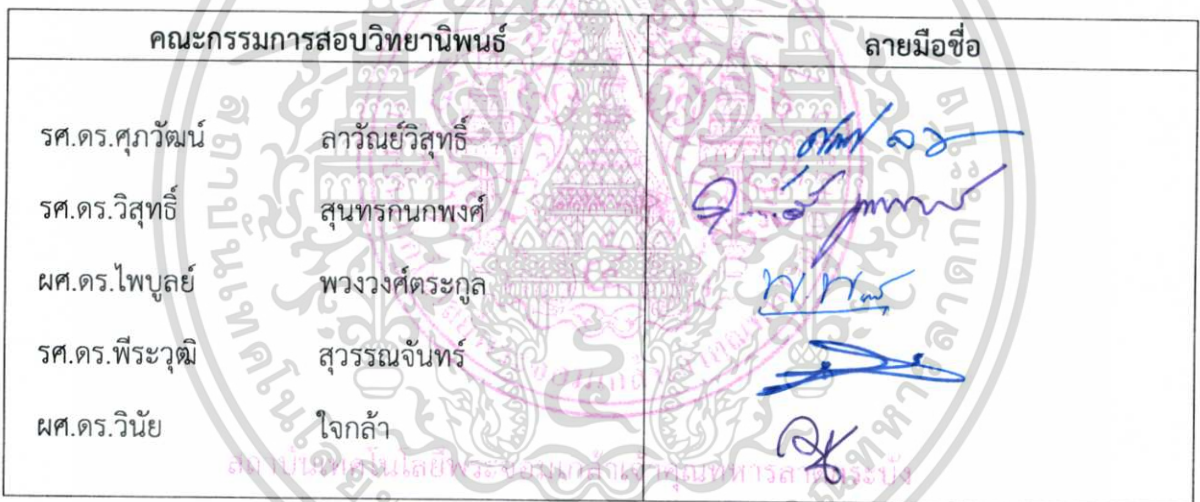 คณะกรรมการสอบวิทยานิพนธ์ ลายมือชื่อ
รศ.ดร.ศุภวัฒน์ ลาวัณย์วิสุทธิ์
รศ.ดร.วิสุทธิ์ สุนทรกนกพงศ์
ผศ.ดร.ไพบูลย์ พวงวงศ์ตระกูล
รศ.ดร.พีระวุฒิ สุวรรณจันทร์
ผศ.ดร.วินัย ใจกล้า
สถาบันเทคโนโลยีพระจอมเกล้าเจ้าคุณทหารลาดกระบัง